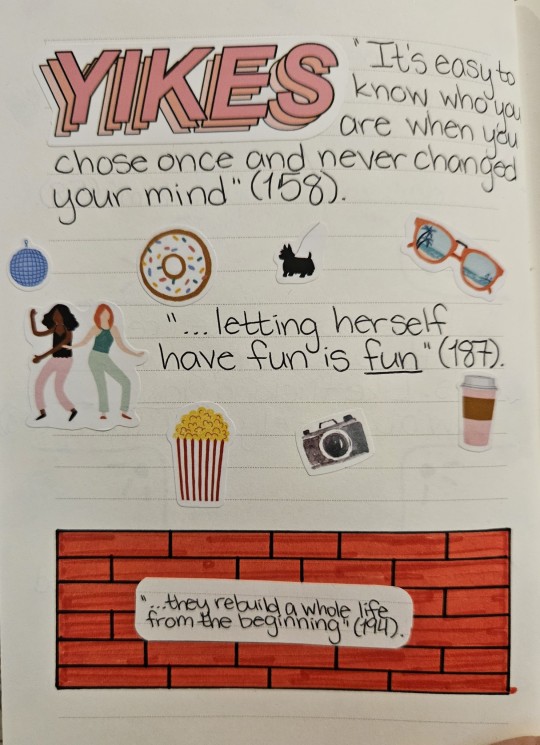 YIKES
"It's easy to
know who you
are when you
chose once and never changed
your mind" (158).
"...letting herself
have fun is fun" (187).
"...they rebuild a whole life
from the beginning" (194).